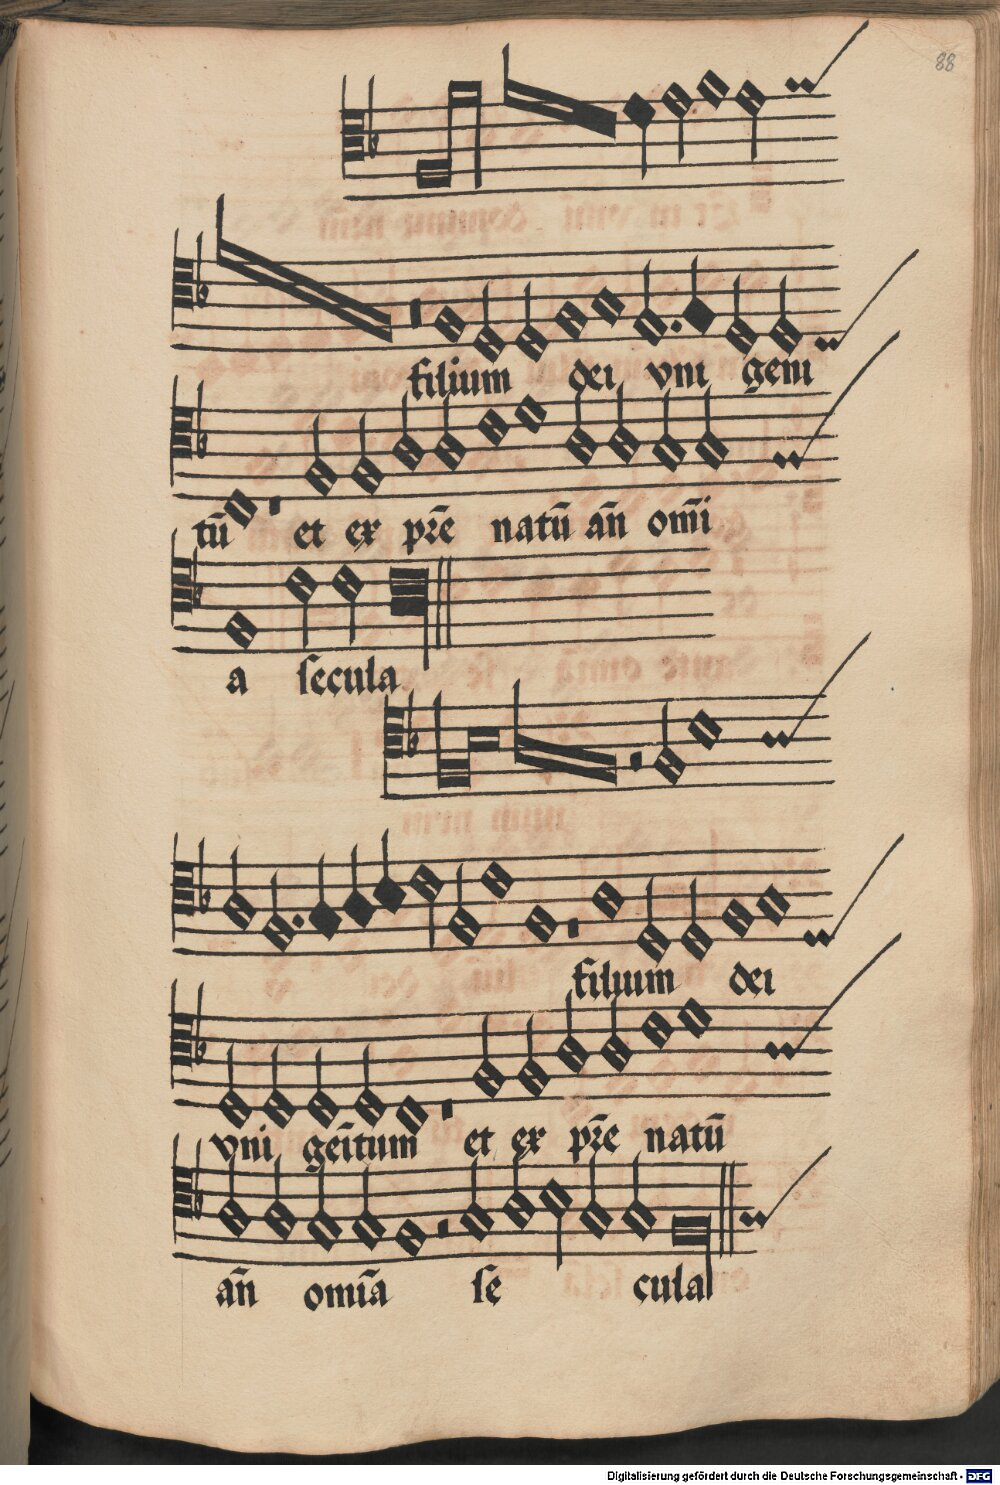 88
filium dei vni geni
tū et ex pr̄e natū an̄ om̄i
a secula
filium dei
vni gēitum et ex pr̄e natū
an̄ omīa se cula
Digitalisierung gefördert durch die Deutsche Forschungsgemeinschaft - DFG